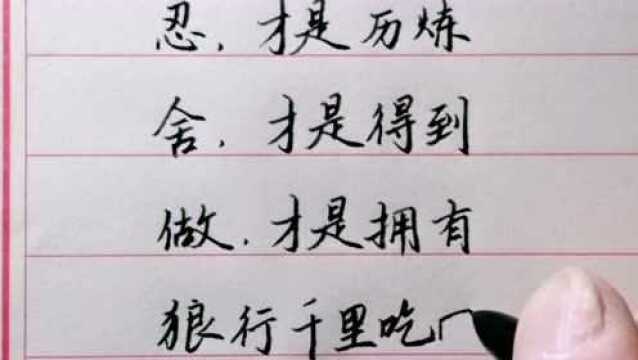 忍，才是历炼
舍，才是得到
做，才是拥有
狼行千里吃